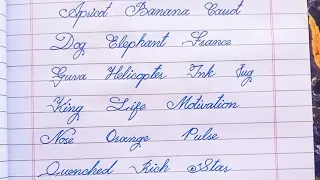 Apricot Banana Carrot
Dog Elephant France
Guva Helicopter Ink Jug
King Life Motivation
Nose Orange Pulse
Quenched Rich Star